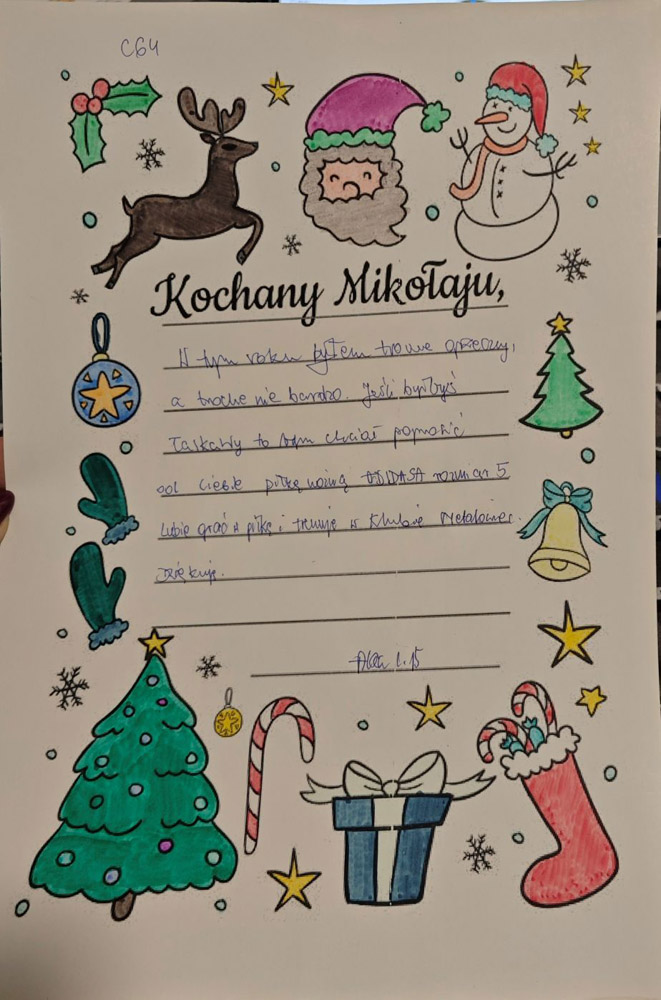 C64
Kochany Mikołaju,
W tym roku byłem troche grzeczny,
a troche nie bardzo. Jeśli byłbyś
łaskawy to bym chciał poprosić
od ciebie piłkę nożną ADIDASA rozmiar 5
Lubie grać w piłkę i trenuje w klubie Metalowiec.
Dziękuję.
l. 15